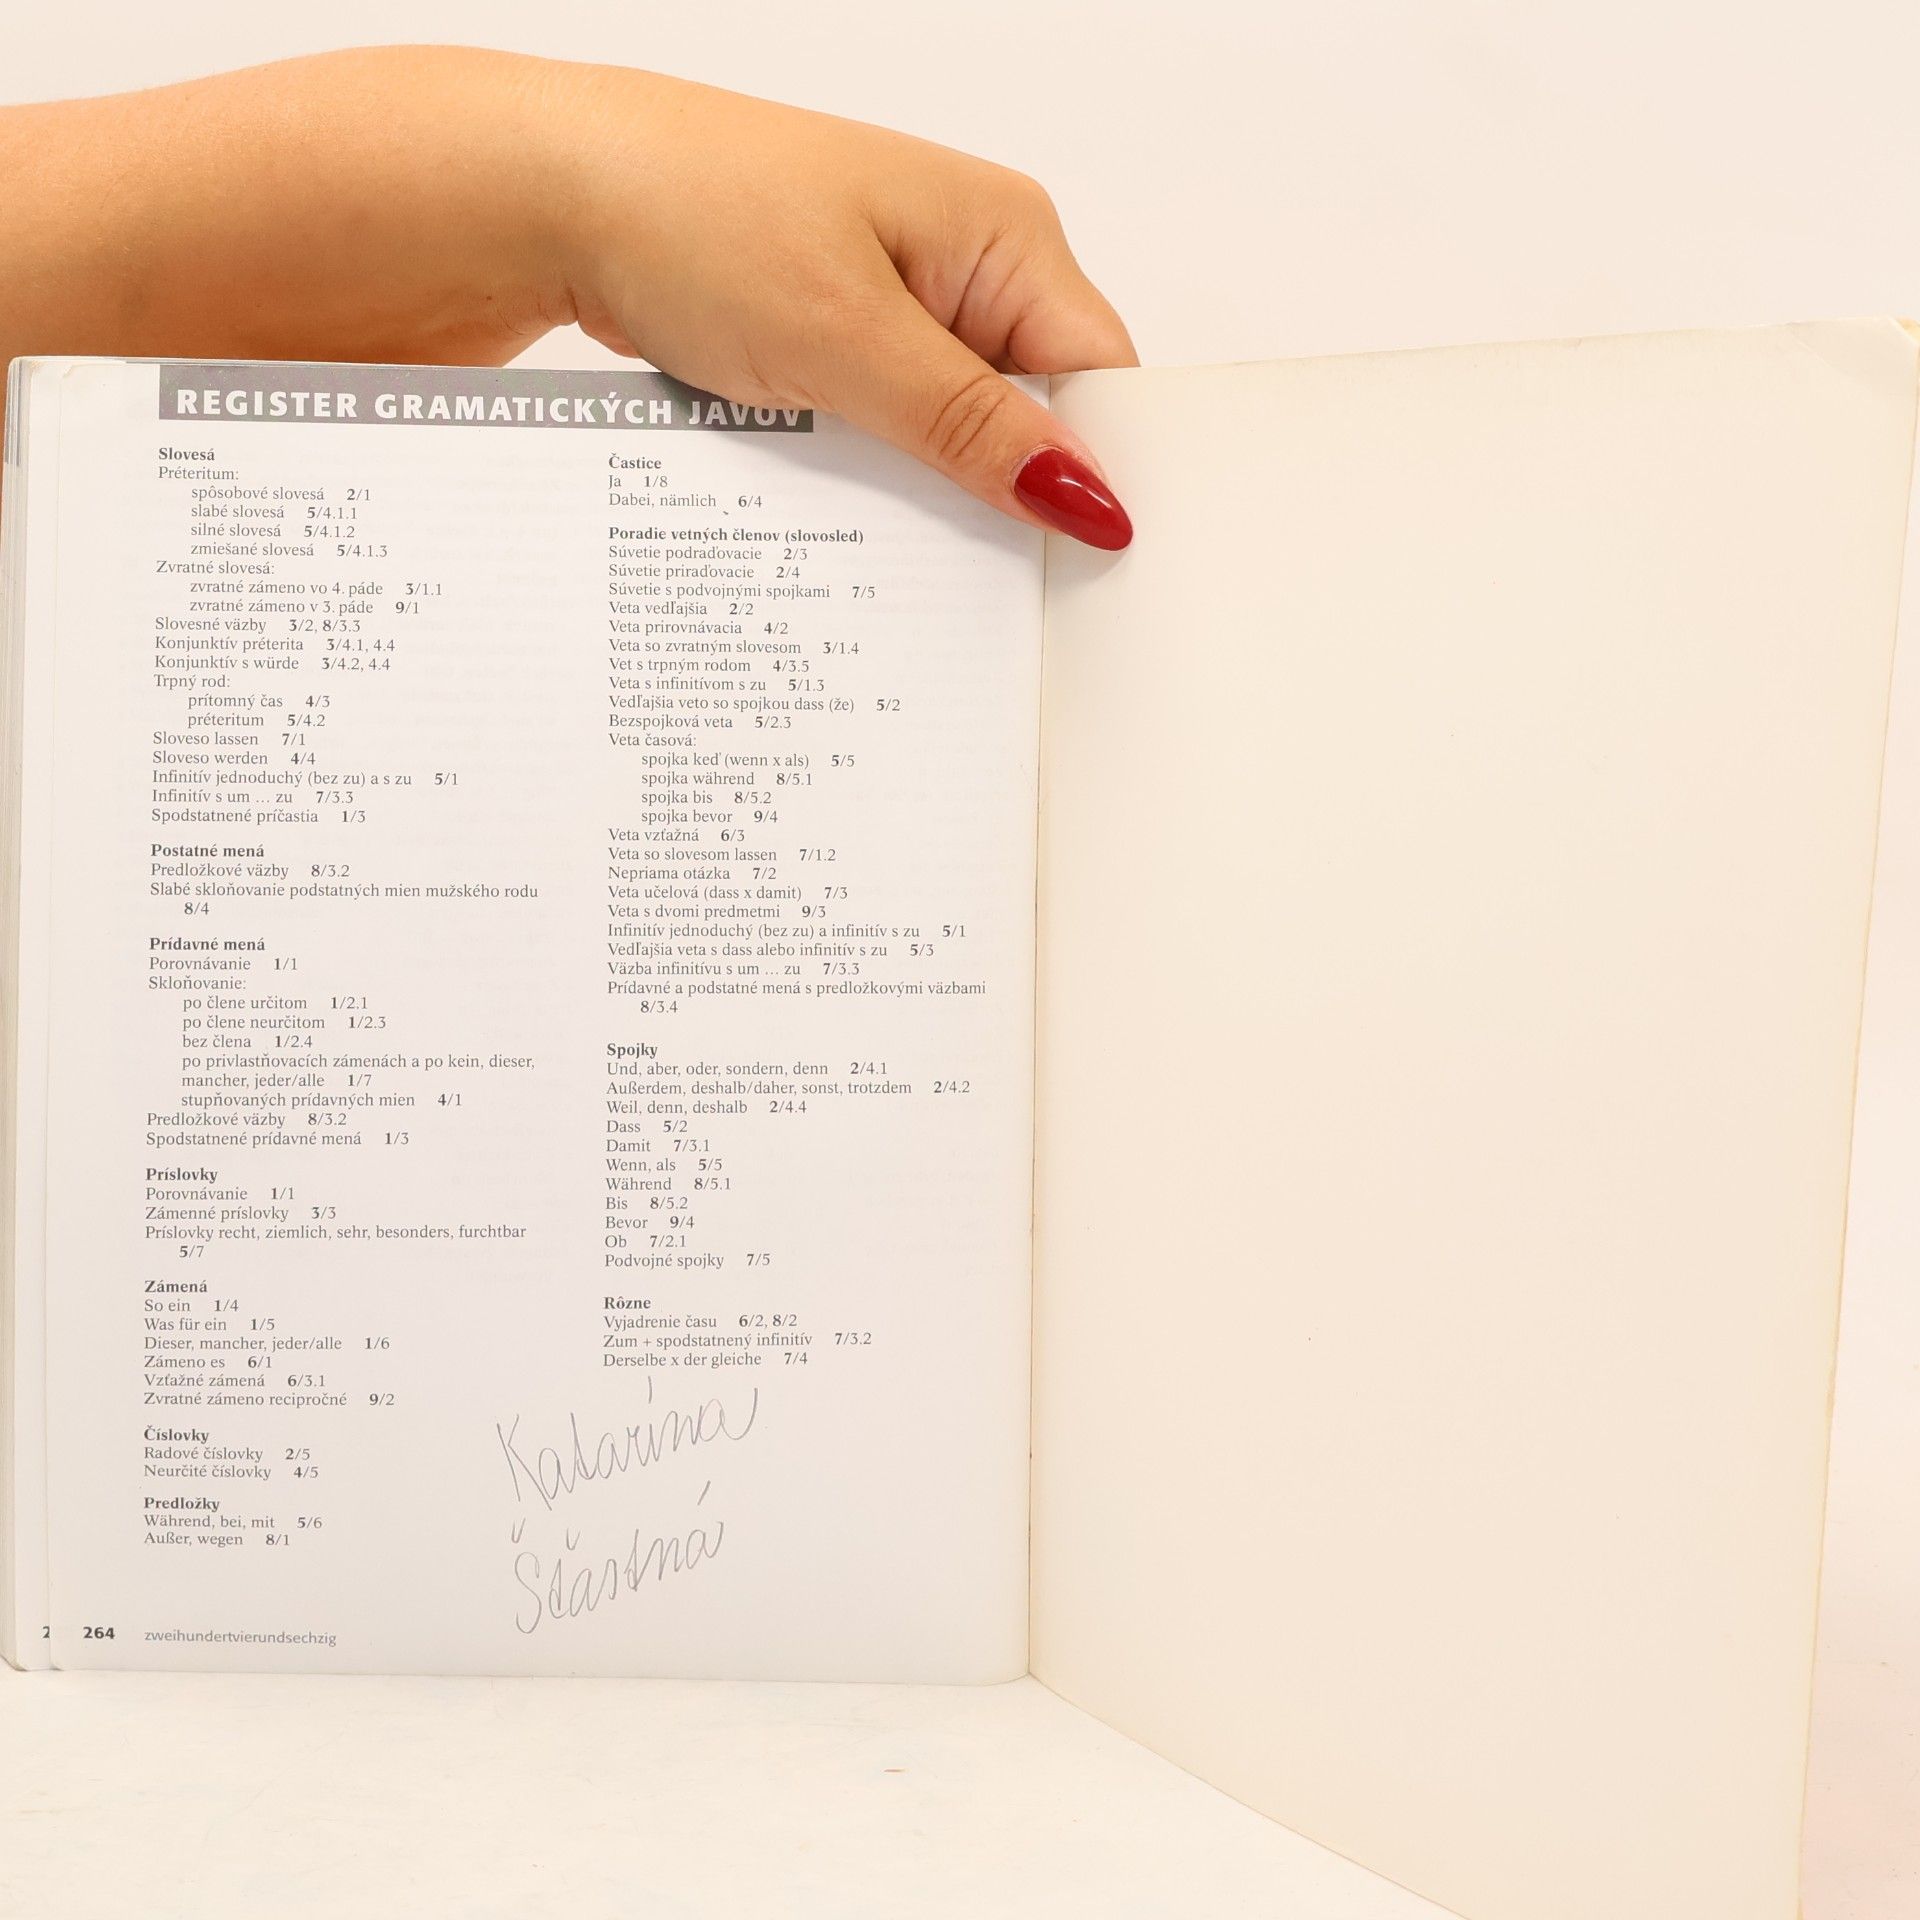 REGISTER GRAMATICKÝCH JAVOV
Slovesá
Préteritum:
spôsobové slovesá 2/1
slabé slovesá 5/4.1.1
silné slovesá 5/4.1.2
zmiešané slovesá 5/4.1.3
Zvratné slovesá:
zvratné zámeno vo 4. páde 3/1.1
zvratné zámeno v 3. páde 9/1
Slovesné väzby 3/2, 8/3.3
Konjunktív préterita 3/4.1, 4.4
Konjunktív s würde 3/4.2, 4.4
Trpný rod:
prítomný čas 4/3
préteritum 5/4.2
Sloveso lassen 7/1
Sloveso werden 4/4
Infinitív jednoduchý (bez zu) a s zu 5/1
Infinitív s um ... zu 7/3.3
Spodstatnené príčastia 1/3
Postatné mená
Predložkové väzby 8/3.2
Slabé skloňovanie podstatných mien mužského rodu
8/4
Prídavné mená
Porovnávanie 1/1
Skloňovanie:
po člene určitom 1/2.1
po člene neurčitom 1/2.3
bez člena 1/2.4
po privlastňovacích zámenách a po kein, dieser,
mancher, jeder/alle 1/7
stupňovaných prídavných mien 4/1
Predložkové väzby 8/3.2
Spodstatnené prídavné mená 1/3
Príslovky
Porovnávanie 1/1
Zámenné príslovky 3/3
Príslovky recht, ziemlich, sehr, besonders, furchtbar
5/7
Zámená
So ein 1/4
Was für ein 1/5
Dieser, mancher, jeder/alle 1/6
Zámeno es 6/1
Vzťažné zámená 6/3.1
Zvratné zámeno recipročné 9/2
Číslovky
Radové číslovky 2/5
Neurčité číslovky 4/5
Predložky
Während, bei, mit 5/6
Außer, wegen 8/1
Častice
Ja 1/8
Dabei, nämlich 6/4
Poradie vetných členov (slovosled)
Súvetie podraďovacie 2/3
Súvetie priraďovacie 2/4
Súvetie s podvojnými spojkami 7/5
Veta vedľajšia 2/2
Veta prirovnávacia 4/2
Veta so zvratným slovesom 3/1.4
Vet s trpným rodom 4/3.5
Veta s infinitívom s zu 5/1.3
Vedľajšia veto so spojkou dass (že) 5/2
Bezspojková veta 5/2.3
Veta časová:
spojka keď (wenn x als) 5/5
spojka während 8/5.1
spojka bis 8/5.2
spojka bevor 9/4
Veta vzťažná 6/3
Veta so slovesom lassen 7/1.2
Nepriama otázka 7/2
Veta učelová (dass x damit) 7/3
Veta s dvomi predmetmi 9/3
Infinitív jednoduchý (bez zu) a infinitív s zu 5/1
Vedľajšia veta s dass alebo infinitív s zu 5/3
Väzba infinitívu s um ... zu 7/3.3
Prídavné a podstatné mená s predložkovými väzbami
8/3.4
Spojky
Und, aber, oder, sondern, denn 2/4.1
Außerdem, deshalb/daher, sonst, trotzdem 2/4.2
Weil, denn, deshalb 2/4.4
Dass 5/2
Damit 7/3.1
Wenn, als 5/5
Während 8/5.1
Bis 8/5.2
Bevor 9/4
Ob 7/2.1
Podvojné spojky 7/5
Rôzne
Vyjadrenie času 6/2, 8/2
Zum + spodstatnený infinitív 7/3.2
Derselbe x der gleiche 7/4
Katarína
Šťastná
264 zweihundertvierundsechzig